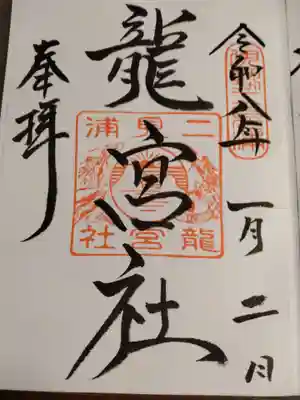 令和八年 一月 二日
龍宮社
二見浦
龍宮社
奉拝